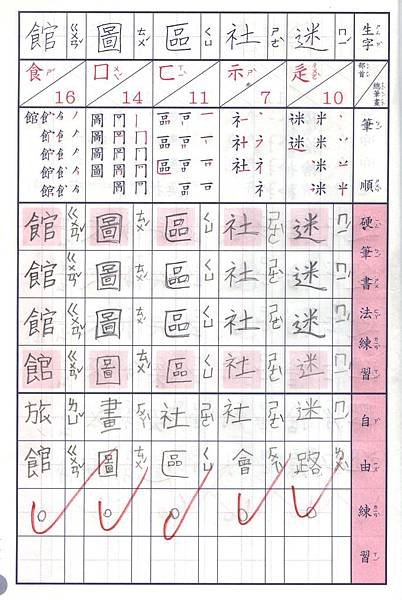 生字 部首 總筆畫 筆順 硬筆書法練習 自由練習
迷 ㄇㄧˊ
辵 10
迷 ㄇㄧˊ
迷 ㄇㄧˊ
迷 ㄇㄧˊ
迷 ㄇㄧˊ
迷路
社 ㄕㄜˋ
示 7
社 ㄕㄜˋ
社 ㄕㄜˋ
社 ㄕㄜˋ
社 ㄕㄜˋ
社會
區 ㄑㄩ
匚 11
區 ㄑㄩ
區 ㄑㄩ
區 ㄑㄩ
區 ㄑㄩ
社區
圖 ㄊㄨˊ
囗 14
圖 ㄊㄨˊ
圖 ㄊㄨˊ
圖 ㄊㄨˊ
圖 ㄊㄨˊ
畫圖
館 ㄍㄨㄢˇ
食 16
館 ㄍㄨㄢˇ
館 ㄍㄨㄢˇ
館 ㄍㄨㄢˇ
館 ㄍㄨㄢˇ
旅館